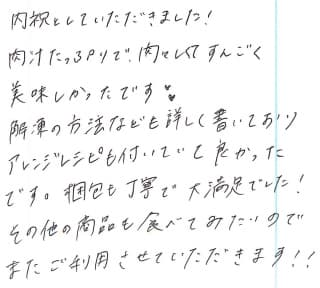 内祝としていただきました!
肉汁たっぷりで、肉々しくてすんごく
美味しかったです♥
解凍の方法なども詳しく書いており
アレンジレシピも付いていて良かった
です。梱包も丁寧で大満足でした!
その他の商品も食べてみたいので
またご利用させていただきます!!